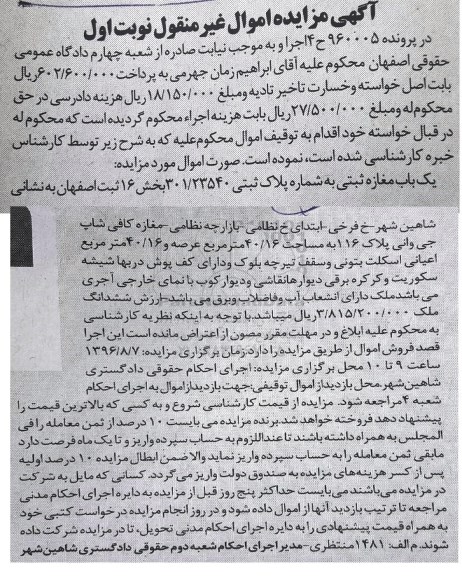 آگهی مزایده اموال غیر منقول نوبت اول
در پرونده ۹۶۰۰۰۵ ح۴اجرا و به موجب نیابت صادره از شعبه چهارم دادگاه عمومی
حقوقی اصفهان محکوم علیه آقای ابراهیم زمان جهرمی به پرداخت۶۰۲/۶۰۰/۰۰۰ریال
بابت اصل خواسته وخسارت تاخیر تادیه ومبلغ ۱۸/۱۵۰/۰۰۰ریال هزینه دادرسی در حق
محکوم له ومبلغ ۲۷/۵۰۰/۰۰۰ریال بابت هزینه اجراء محکوم گردیده است که محکوم له
در قبال خواسته خود اقدام به توقیف اموال محکوم علیه که به شرح زیر توسط کارشناس
خبره کارشناسی شده است، نموده است. صورت اموال مورد مزایده:
یک باب مغازه ثبتی به شماره پلاک ثبتی ۳۰۱/۲۳۵۴۰بخش۱۶ ثبت اصفهان به نشانی
شاهین شهر-خ فرخی -ابتدای خ نظامی -بازارچه نظامی-مغازه کافی شاپ
جی وانی پلاک ۱۱۶به مساحت ۴۰/۱۶مترمربع عرصه و۴۰/۱۶متر مربع
اعیانی اسکلت بتونی وسقف تیرچه بلوک ودارای کف پوش دربها شیشه
سکوریت و کرکره برقی دیوارهانقاشی ودیوارکوب با نمای خارجی آجری
می باشدملک دارای انشعاب آب وفاضلاب وبرق می باشد-ارزش ششدانگ
ملک ۳/۸۱۵/۲۰۰/۰۰۰ریال میباشد.با توجه به اینکه نظریه کارشناسی
به محکوم علیه ابلاغ و در مهلت مقرر مصون از اعتراض مانده است این اجرا
قصد فروش اموال از طریق مزایده را دارد.زمان برگزاری مزایده: ۱۳۹۶/۸/۷
ساعت ۹ تا ۱۰ محل برگزاری مزایده: اجرای احکام حقوقی دادگستری
شاهین شهر.محل بازدیداز اموال توقیفی:جهت بازدیداز اموال به اجرای احکام
شعبه ۴مراجعه شود. مزایده از قیمت کارشناسی شروع و به کسی که بالاترین قیمت را
پیشنهاد دهد فروخته خواهد شد.برنده مزایده می بایست ۱۰ درصد از ثمن معامله را فی
المجلس به همراه داشته باشند تا عنداللزوم به حساب سپرده واریز و تا یک ماه فرصت دارد
مابقی ثمن معامله را به حساب سپرده واریز نماید والا ضمن ابطال مزایده ۱۰ درصد اولیه
پس از کسر هزینه های مزایده به صندوق دولت واریز می گردد. کسانی که مایل به شرکت
در مزایده می باشند می بایست حداکثر پنج روز قبل از مزایده به دایره اجرای احکام مدنی
مراجعه تا ترتیب بازدید آنها از اموال داده شود و در روز انجام مزایده درخواست کتبی خود
به همراه قیمت پیشنهادی را به دایره اجرای احکام مدنی تحویل، تا در مزایده شرکت داده
شوند. م الف: ۱۴۸۱منتظری-مدیر اجرای احکام شعبه دوم حقوقی دادگستری شاهین شهر